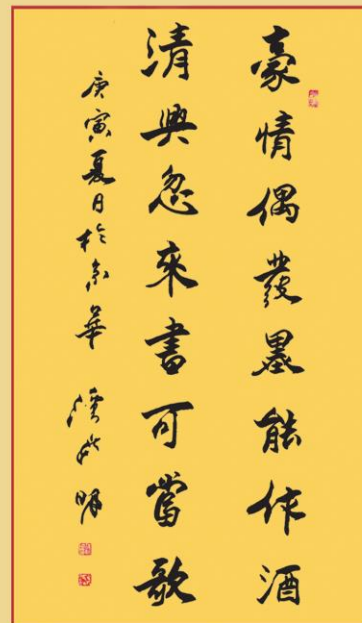 豪情偶發墨能作酒
清興忽來書可當歌
庚寅夏日於京華